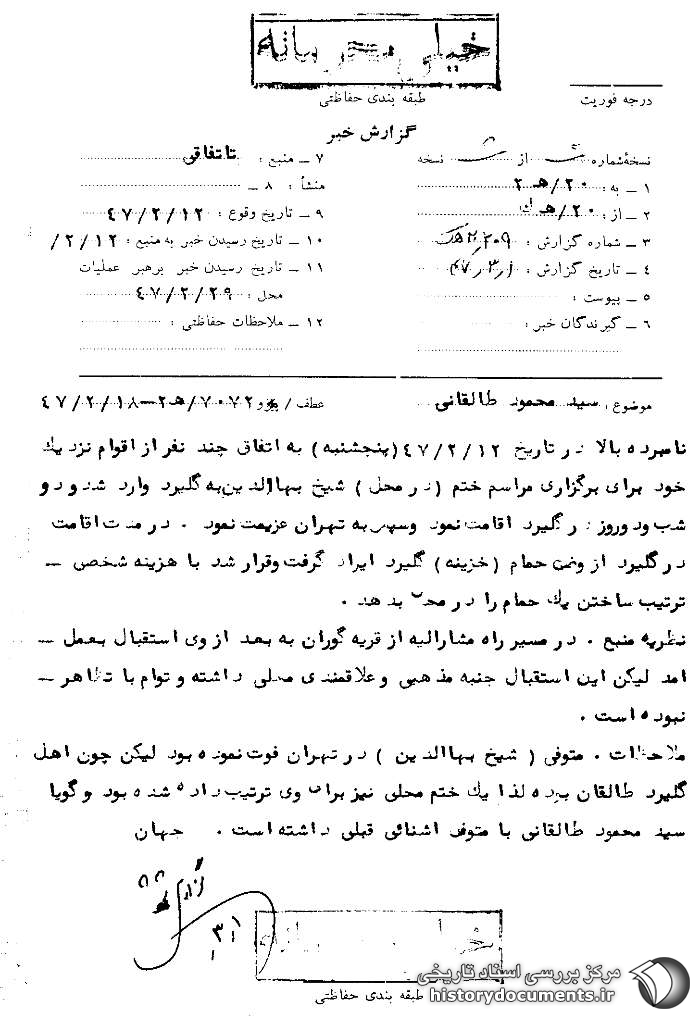 خیلی محرمانه
طبقه بندی حفاظتی
درجه فوریت
گزارش خبر
نسخهٔ شماره از نسخه
۱ ـ به : ۲۰/هـ ۲
۲ ـ از : ۲۰/هـ
۳ ـ شماره گزارش :
۴ ـ تاریخ گزارش : ۴۷/۳/۱
۵ ـ پیوست :
۶ ـ گیرندگان خبر :
۷ ـ منبع : تاتفاقی
۸ ـ منشأ :
۹ ـ تاریخ وقوع : ۴۷/۲/۱۲
۱۰ ـ تاریخ رسیدن خبر به منبع : ۲/۱۲/
۱۱ ـ تاریخ رسیدن خبر برهبر عملیات
محل : ۴۷/۲/۲۹
۱۲ ـ ملاحظات حفاظتی :
موضوع : سید محمود طالقانی
عطف / پیرو ۷۰۷۲/هـ۲ـ ۴۷/۲/۱۸
نامبرده بالا در تاریخ ۴۷/۲/۱۲ (پنجشنبه) به اتفاق چند نفر از اقوام نزدیک
خود برای برگزاری مراسم ختم (در محل) شیخ بهاالدین به گلیرد وارد شد و دو
شب و دو روز در گلیرد اقامت نمود وسپس به تهران عزیمت نمود . در مدت اقامت
در گلیرد از وضع حمام (خزینه) گلیرد ایراد گرفت وقرار شد با هزینه شخصی ـ
ترتیب ساختن یک حمام را در محل بدهد .
نظریه منبع . در مسیر راه مشارالیه از قریه گوران به بعد از وی استقبال بعمل ـ
امد لیکن این استقبال جنبه مذهبی و علاقمندی محلی داشته و توام با تظاهر ـ
نبوده است .
ملاحظات . متوفی ( شیخ بهاالدین ) در تهران فوت نموده بود لیکن چون اهل
گلیرد طالقان بوده لذا یک ختم محلی نیز برای وی ترتیب داده شده بود و گویا
سید محمود طالقانی با متوفی اشنائی قبلی داشته است . جهان
۳/۱
طبقه بندی حفاظتی
مرکز بررسی اسناد تاریخی
historydocuments.ir